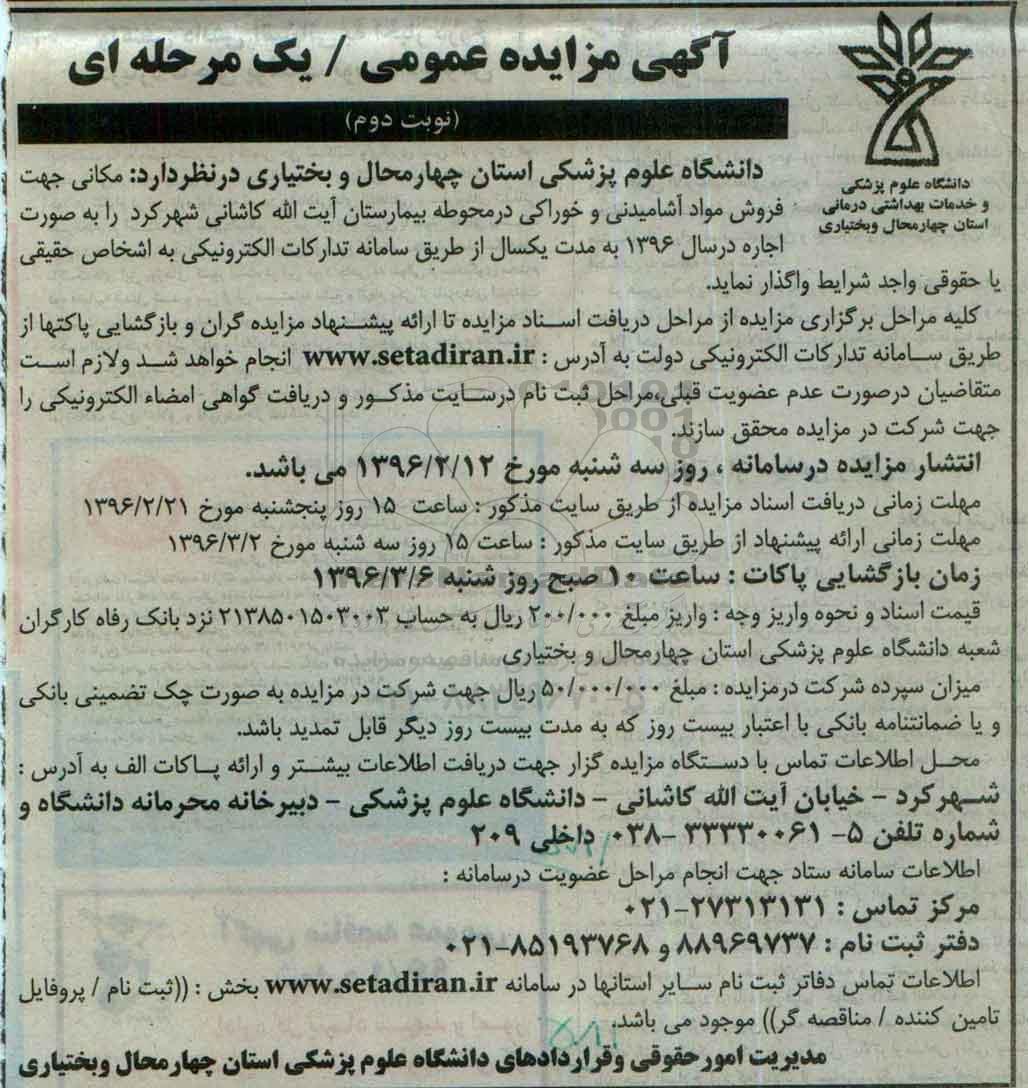 آگهی مزایده عمومی / یک مرحله ای
(نوبت دوم)
دانشگاه علوم پزشکی
و خدمات بهداشتی درمانی
استان چهارمحال وبختیاری
دانشگاه علوم پزشکی استان چهارمحال و بختیاری درنظردارد: مکانی جهت
فروش مواد آشامیدنی و خوراکی درمحوطه بیمارستان آیت الله کاشانی شهرکرد را به صورت
اجاره درسال ۱۳۹۶ به مدت یکسال از طریق سامانه تدارکات الکترونیکی به اشخاص حقیقی
یا حقوقی واجد شرایط واگذار نماید.
کلیه مراحل برگزاری مزایده از مراحل دریافت اسناد مزایده تا ارائه پیشنهاد مزایده گران و بازگشایی پاکتها از
طریق سامانه تدارکات الکترونیکی دولت به آدرس : www.setadiran.ir انجام خواهد شد ولازم است
متقاضیان درصورت عدم عضویت قبلی،مراحل ثبت نام درسایت مذکور و دریافت گواهی امضاء الکترونیکی را
جهت شرکت در مزایده محقق سازند.
انتشار مزایده درسامانه ، روز سه شنبه مورخ ۱۳۹۶/۲/۱۲ می باشد.
مهلت زمانی دریافت اسناد مزایده از طریق سایت مذکور : ساعت ۱۵ روز پنجشنبه مورخ ۱۳۹۶/۲/۲۱
مهلت زمانی ارائه پیشنهاد از طریق سایت مذکور : ساعت ۱۵ روز سه شنبه مورخ ۱۳۹۶/۳/۲
زمان بازگشایی پاکات : ساعت ۱۰ صبح روز شنبه ۱۳۹۶/۳/۶
قیمت اسناد و نحوه واریز وجه : واریز مبلغ ۲۰۰/۰۰۰ ریال به حساب ۲۱۳۸۵۰۱۵۰۳۰۰۳ نزد بانک رفاه کارگران
شعبه دانشگاه علوم پزشکی استان چهارمحال و بختیاری
میزان سپرده شرکت درمزایده : مبلغ ۵۰/۰۰۰/۰۰۰ ریال جهت شرکت در مزایده به صورت چک تضمینی بانکی
و یا ضمانتنامه بانکی با اعتبار بیست روز که به مدت بیست روز دیگر قابل تمدید باشد.
محل اطلاعات تماس با دستگاه مزایده گزار جهت دریافت اطلاعات بیشتر و ارائه پاکات الف به آدرس :
شهرکرد - خیابان آیت الله کاشانی - دانشگاه علوم پزشکی - دبیرخانه محرمانه دانشگاه و
شماره تلفن ۵- ۳۳۳۳۰۰۶۱ -۰۳۸ داخلی ۲۰۹
اطلاعات سامانه ستاد جهت انجام مراحل عضویت درسامانه :
مرکز تماس : ۲۷۳۱۳۱۳۱-۰۲۱
دفتر ثبت نام : ۸۸۹۶۹۷۳۷ و ۸۵۱۹۳۷۶۸-۰۲۱
اطلاعات تماس دفاتر ثبت نام سایر استانها در سامانه www.setadiran.ir بخش : ((ثبت نام / پروفایل
تامین کننده / مناقصه گر)) موجود می باشد.
مدیریت امورحقوقی وقراردادهای دانشگاه علوم پزشکی استان چهارمحال وبختیاری